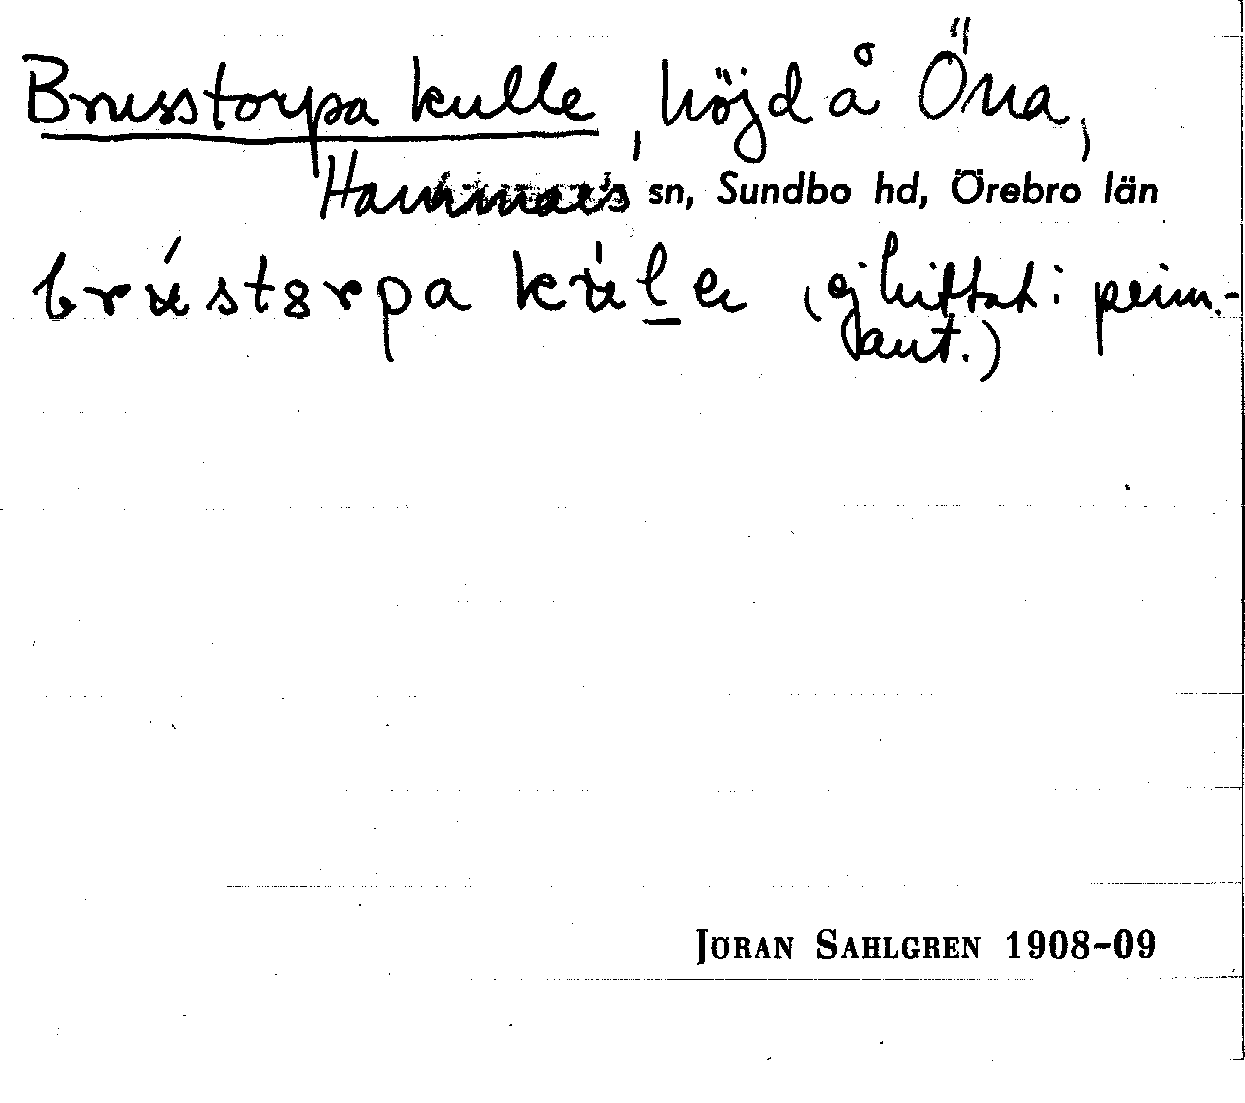 Brusstorpa kulle, höjd å Öna,
Hammars sn, Sundbo hd, Örebro län
brústorpa kùle (ej hittat i prim.-
ant.)
JÖRAN SAHLGREN 1908-09